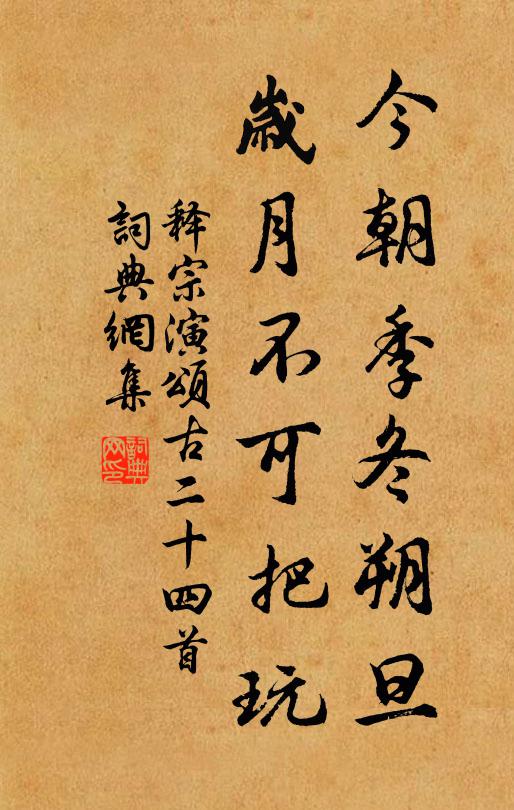 今朝季冬朔旦
歲月不可把玩
释宗演頌古二十四首
詞典網集
詞典网印